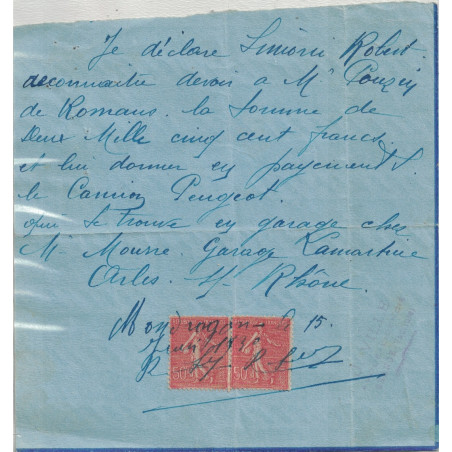 Je déclare Simioni Robert.
reconnaitre devoir a Mr Pouzin
de Romans. la Somme de
Deux Mille cinq cent francs
et lui donner en payement
le Camion Peugeot.
qui se trouve en garage chez
M. Mourre. Garage Lamartine
Arles. s/ Rhône.
Mondragon le 15.
50 50